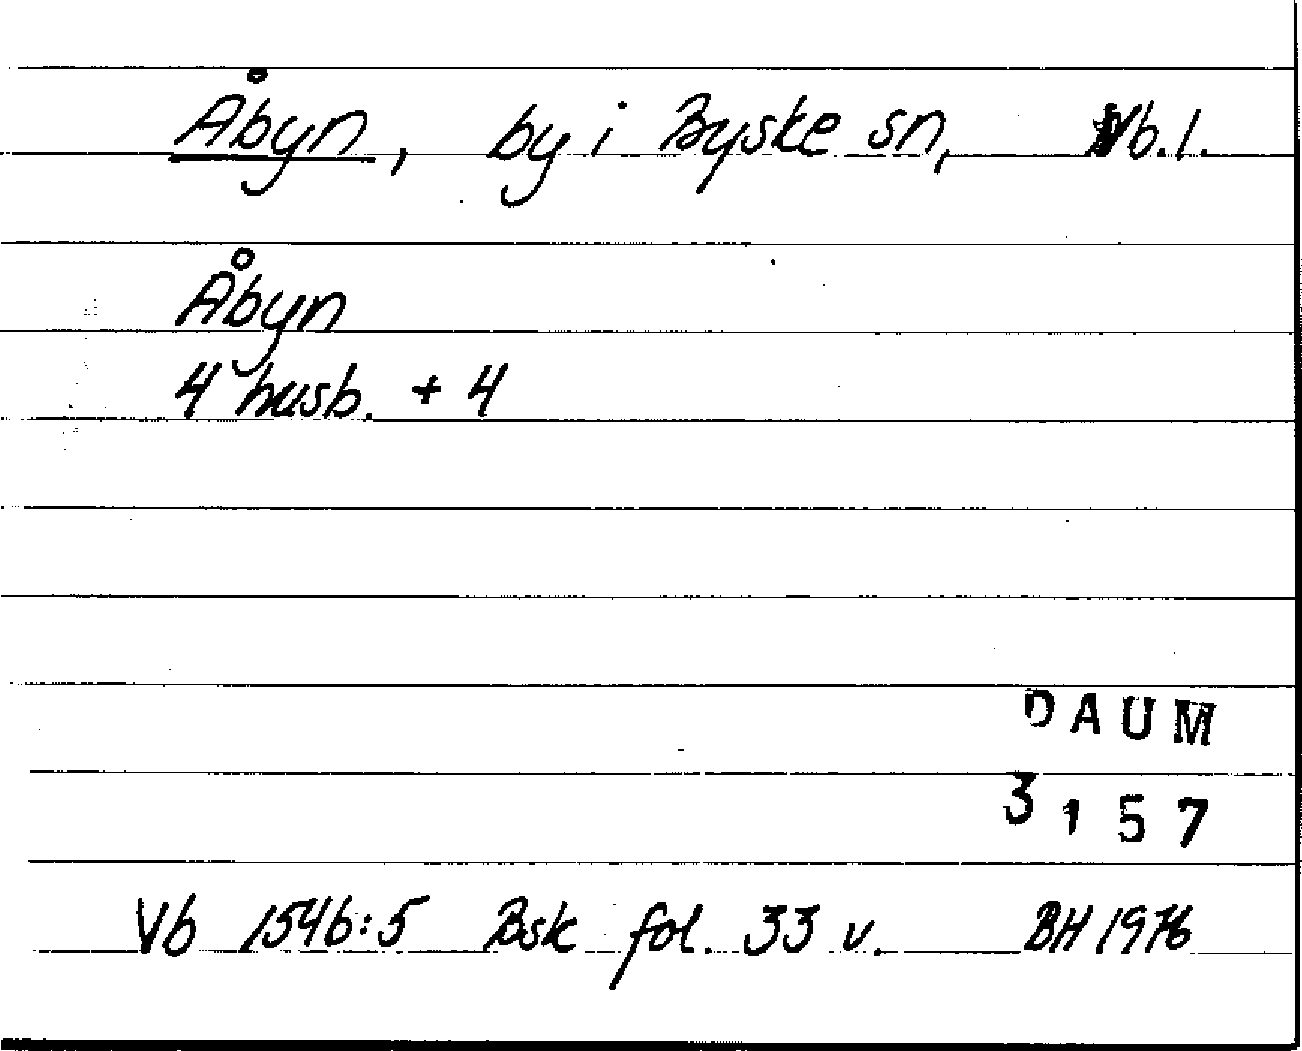 Åbyn, by i Byske sn, Vb.l.
Åbyn
4 husb. + 4
DAUM
3157
Vb 1546:5 Bsk fol. 33 v. BH 1976